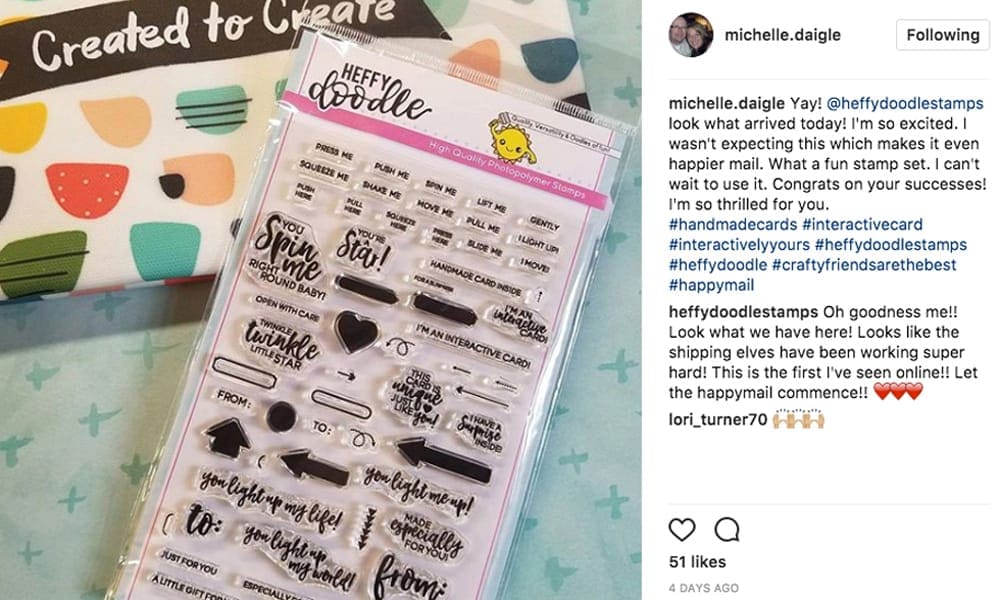 Created to Create
HEFFY
doodle
Quality, Versatility & Oodles of fun!
High Quality Photopolymer Stamps
PRESS ME
PUSH ME
SPIN ME
LIFT ME
GENTLY
SQUEEZE ME
SHAKE ME
MOVE ME
PULL ME
I LIGHT UP!
PUSH
HERE
PULL
HERE
SQUEEZE
HERE
PRESS
HERE
SLIDE ME
I MOVE!
YOU
Spin
me
RIGHT
ROUND BABY!
YOU'RE
A
Star!
HANDMADE CARD INSIDE
FOR A SURPRISE
I'M AN
interactive
CARD!
OPEN WITH CARE
TWINKLE
twinkle
LITTLE STAR
I'M AN INTERACTIVE CARD!
THIS
CARD IS
unique
JUST
LIKE
you!
I HAVE A
Surprise
INSIDE!
FROM:
TO:
you light up my life!
you light me up!
to:
you light up
my world!
MADE
especially
FOR YOU!
from:
JUST FOR YOU
A LITTLE GIFT FOR
ESPECIALLY FO
michelle.daigle
Following
michelle.daigle Yay! @heffydoodlestamps
look what arrived today! I'm so excited. I
wasn't expecting this which makes it even
happier mail. What a fun stamp set. I can't
wait to use it. Congrats on your successes!
I'm so thrilled for you.
#handmadecards #interactivecard
#interactivelyyours #heffydoodlestamps
#heffydoodle #craftyfriendsarethebest
#happymail
heffydoodlestamps Oh goodness me!!
Look what we have here! Looks like the
shipping elves have been working super
hard! This is the first I've seen online!! Let
the happymail commence!! ❤️❤️❤️
lori_turner70 🙌🏼🙌🏼🙌🏼
51 likes
4 DAYS AGO